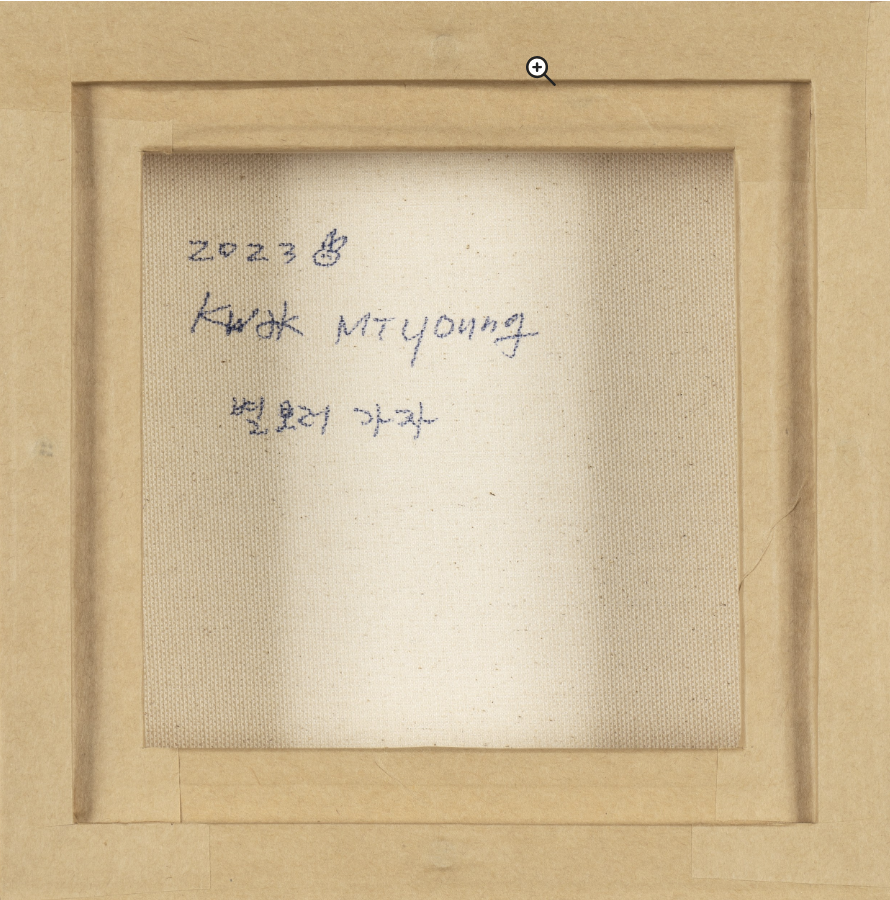 2023
KWak MIyoung
별 보러 가자